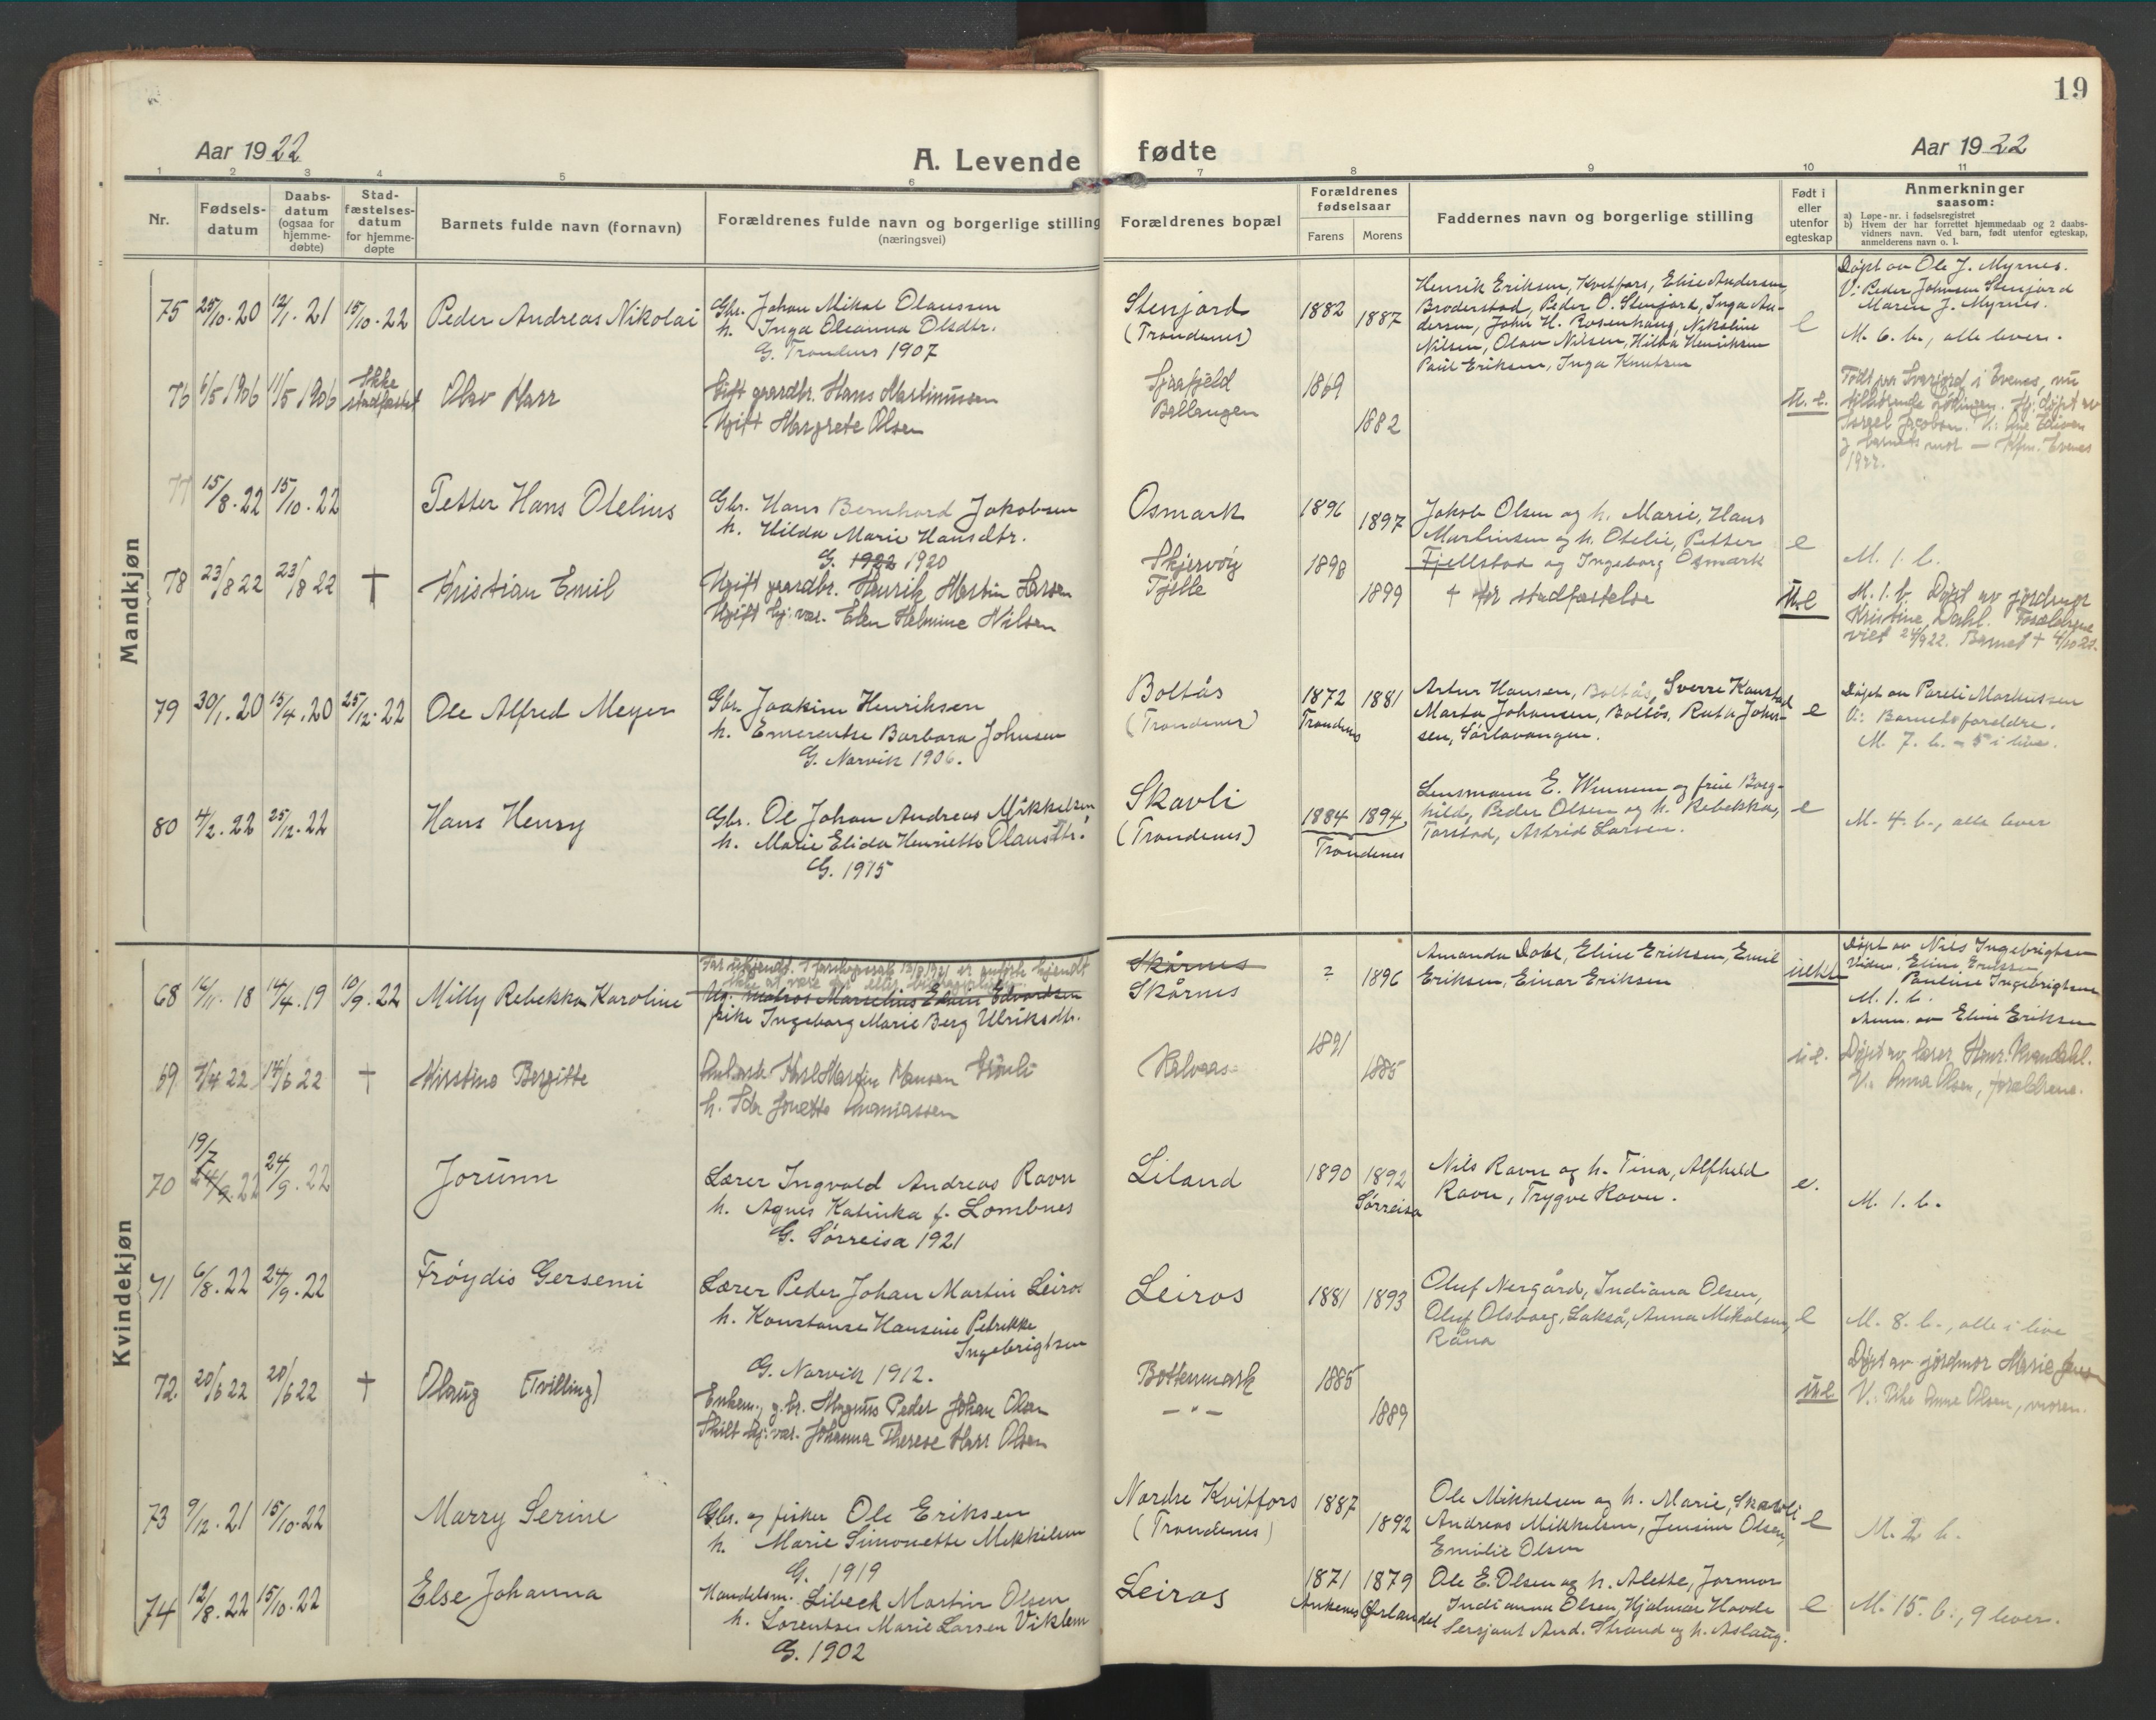 19
Aar 1922
A. Levende fødte
Aar 1922
1 2 3 4 5 6 7 8 9 10 11
Nr.
Fødsels-
datum
Daabs-
datum
(ogsaa for
hjemme-
døbte)
Stad-
fæstelses-
datum
for hjemme-
døpte
Barnets fulde navn (fornavn)
Forældrenes fulde navn og borgerlige stilling
(næringsvei)
Forældrenes bopæl
Forældrenes
fødselsaar
Farens Morens
Faddernes navn og borgerlige stilling
Født i
eller
utenfor
egteskap
Anmerkninger
saasom:
a) Løpe-nr. i fødselsregistret
b) Hvem der har forrettet hjemmedaab og 2 daabs-
vidners navn. Ved barn, født utenfor egteskap,
anmelderens navn o. l.
Mandkjøn
75 25/10.20 12/1.21 15/10.22 Peder Andreas Nikolai
Gbr. Johan Mikal Olaussen
h. Inga Oleanna Olsdtr.
G. Trondenes 1907
Stenjord
(Trondenes)
1882 1887
Henrik Eriksen, Kvitfors, Elise Andersen
Broderstad, Peder O. Stenjord, Inga An-
dersen, John H. Rosenhaug, Nikoline
Nilsen, Olav Nilsen, Hilda Henriksen
Paul Eriksen, Inga Knutsen
e
Døpt av Ole J. Myrnes.
V: Peder Johnsen Stenjord
Maren J. Myrnes.
M. 6. b., alle lever.
76 6/5 1906 11/5 1906 Ikke
stadfæstet
Olav Harr
Gift gaardbr. Hans Martinussen
Ugift Margrete Olsen
Ballangen
1869
1882
U. e.
i Evenes, nu
døpt av
Jacobsen.
barnets mor — Evenes
1922.
77 15/8.22 15/10.22 Petter Hans Otelius
Gbr. Hans Bernhard Jakobsen
h. Hilda Marie Hansdtr.
G. 1922 1920
Osmark
1896 1897
Jakob Olsen og h. Marie, Hans
Martinsen og h. Otelie, Petter
Fjellstad og Ingeborg Osmark
e
M. 1. b.
78 23/8 22 23/8 22 † Kristian Emil
Ugift gaardbr. Henrik Martin Larsen
Ugift hj: vær. Elen Helmine Nilsen
Skjervøy
Tjelle
1898
1899
† før stadfæstelse
U.e
M. 1. b. Døpt av jordmor
Kristine Dahl. Forældrene
viet 24/9 22. Barnet † 4/10 22.
79 30/1.20 15/4.20 25/12.22 Ole Alfred Meyer
Gbr. Joakim Henriksen
h. Emerentse Barbara Johnsen
G. Narvik 1906.
Boltås
(Trondenes)
1872 1881
Trondenes
Artur Hansen, Boltås, Sverre Kanstad
Marta Johansen, Boltås, Ruta Johan-
sen, Sørlavangen.
e
Døpt av Pareli Markussen
V: Barnets foreldre.
M. 7. b. – 5 i live.
80 4/2.22 25/12.22 Hans Henry
Gbr. Ole Johan Andreas Mikkelsen
h. Marie Elida Henriette Olausdtr.
G. 1915
Skavli
(Trondenes)
1884 1894
Trondenes
Lensmann E. Wennem og frue Borg-
hild, Peder Olsen og h. Rebekka,
Tarstad, Astrid Larsen.
e
M. 4. b., alle lever
Kvindekjøn
68 16/11.18 14/4.19 10/9.22 Milly Rebekka Karoline
Far ukjendt.
Ug. matros Marselius Edvardsen
pike Ingeborg Marie Berg Ulriksdtr.
Skårnes
Skårnes
1896
Amanda Dahl, Eline Eriksen, Emil
Eriksen, Einar Eriksen
uekte
Døpt av Nils Ingebrigtsen
Vidner, Eline Eriksen
Pauline Ingebrigtsen
M. 1. b.
Anm. av Eline Eriksen
69 7/4 22 14/6 22 † Kirstine Bergitte
Karl Martin Hansen
h. Ida Jonette Ananiassen
1891
1885
u.e.
Døpt av lærer
V: Anna Olsen, forældrene.
70 19/7
24/9.22 24/9.22 Jorunn
Lærer Ingvald Andreas Ravn
h. Agnes Katinka f. Lombnes
G. Sørreisa 1921
Liland
1890 1892
Sørreisa
Nils Ravn og h. Tina, Alfhild
Ravn, Trygve Ravn.
e.
M. 1. b.
71 6/8.22 24/9.22 Frøydis Gersemi
Lærer Peder Johan Martin Leiros
h. Konstanse Hansine Petrikke
Ingebrigtsen
G. Narvik 1912.
Leiros
1881 1893
Oluf Nergård, Indiana Olsen,
Oluf Olsborg, Lakså, Anna Mikalsen,
Råna
e
M. 8. b., alle i live
72. 20/6 22 20/6 22 † Olaug (Tvilling)
Enkem., g.br. Magnus Peder Johan Olsen
Skilt hj: vær. Johanna Therese Harr Olsen
Bottenmark
– " –
1885
1889
U.e
Døpt av jordmor Marie Jensen
V: Pike Anne Olsen, moren.
73 9/12.21 15/10.22 Marry Serine
Gbr. og fisker Ole Eriksen
h. Marie Simonette Mikkelsen
G. 1919
Nordre Kvitfors
(Trondenes)
1887
1892
Ole Mikkelsen og h. Marie, Skavli
Andreas Mikkelsen, Jensine Olsen,
Emilie Olsen
e
M. 2 b.
74 12/8.22 15/10.22 Else Johanna
Handelsm. Libeck Martin Olsen
h. Lorentse Marie Larsen Viklem
G. 1902
Leiros
1871 1879
Ankenes Ørlandet
Ole E. Olsen og h. Alette, Jormor
Indianna Olsen, Hjalmar Hovde
Sersjant And. Strand og h. Aslaug.
e
M. 15. b., 9 lever.